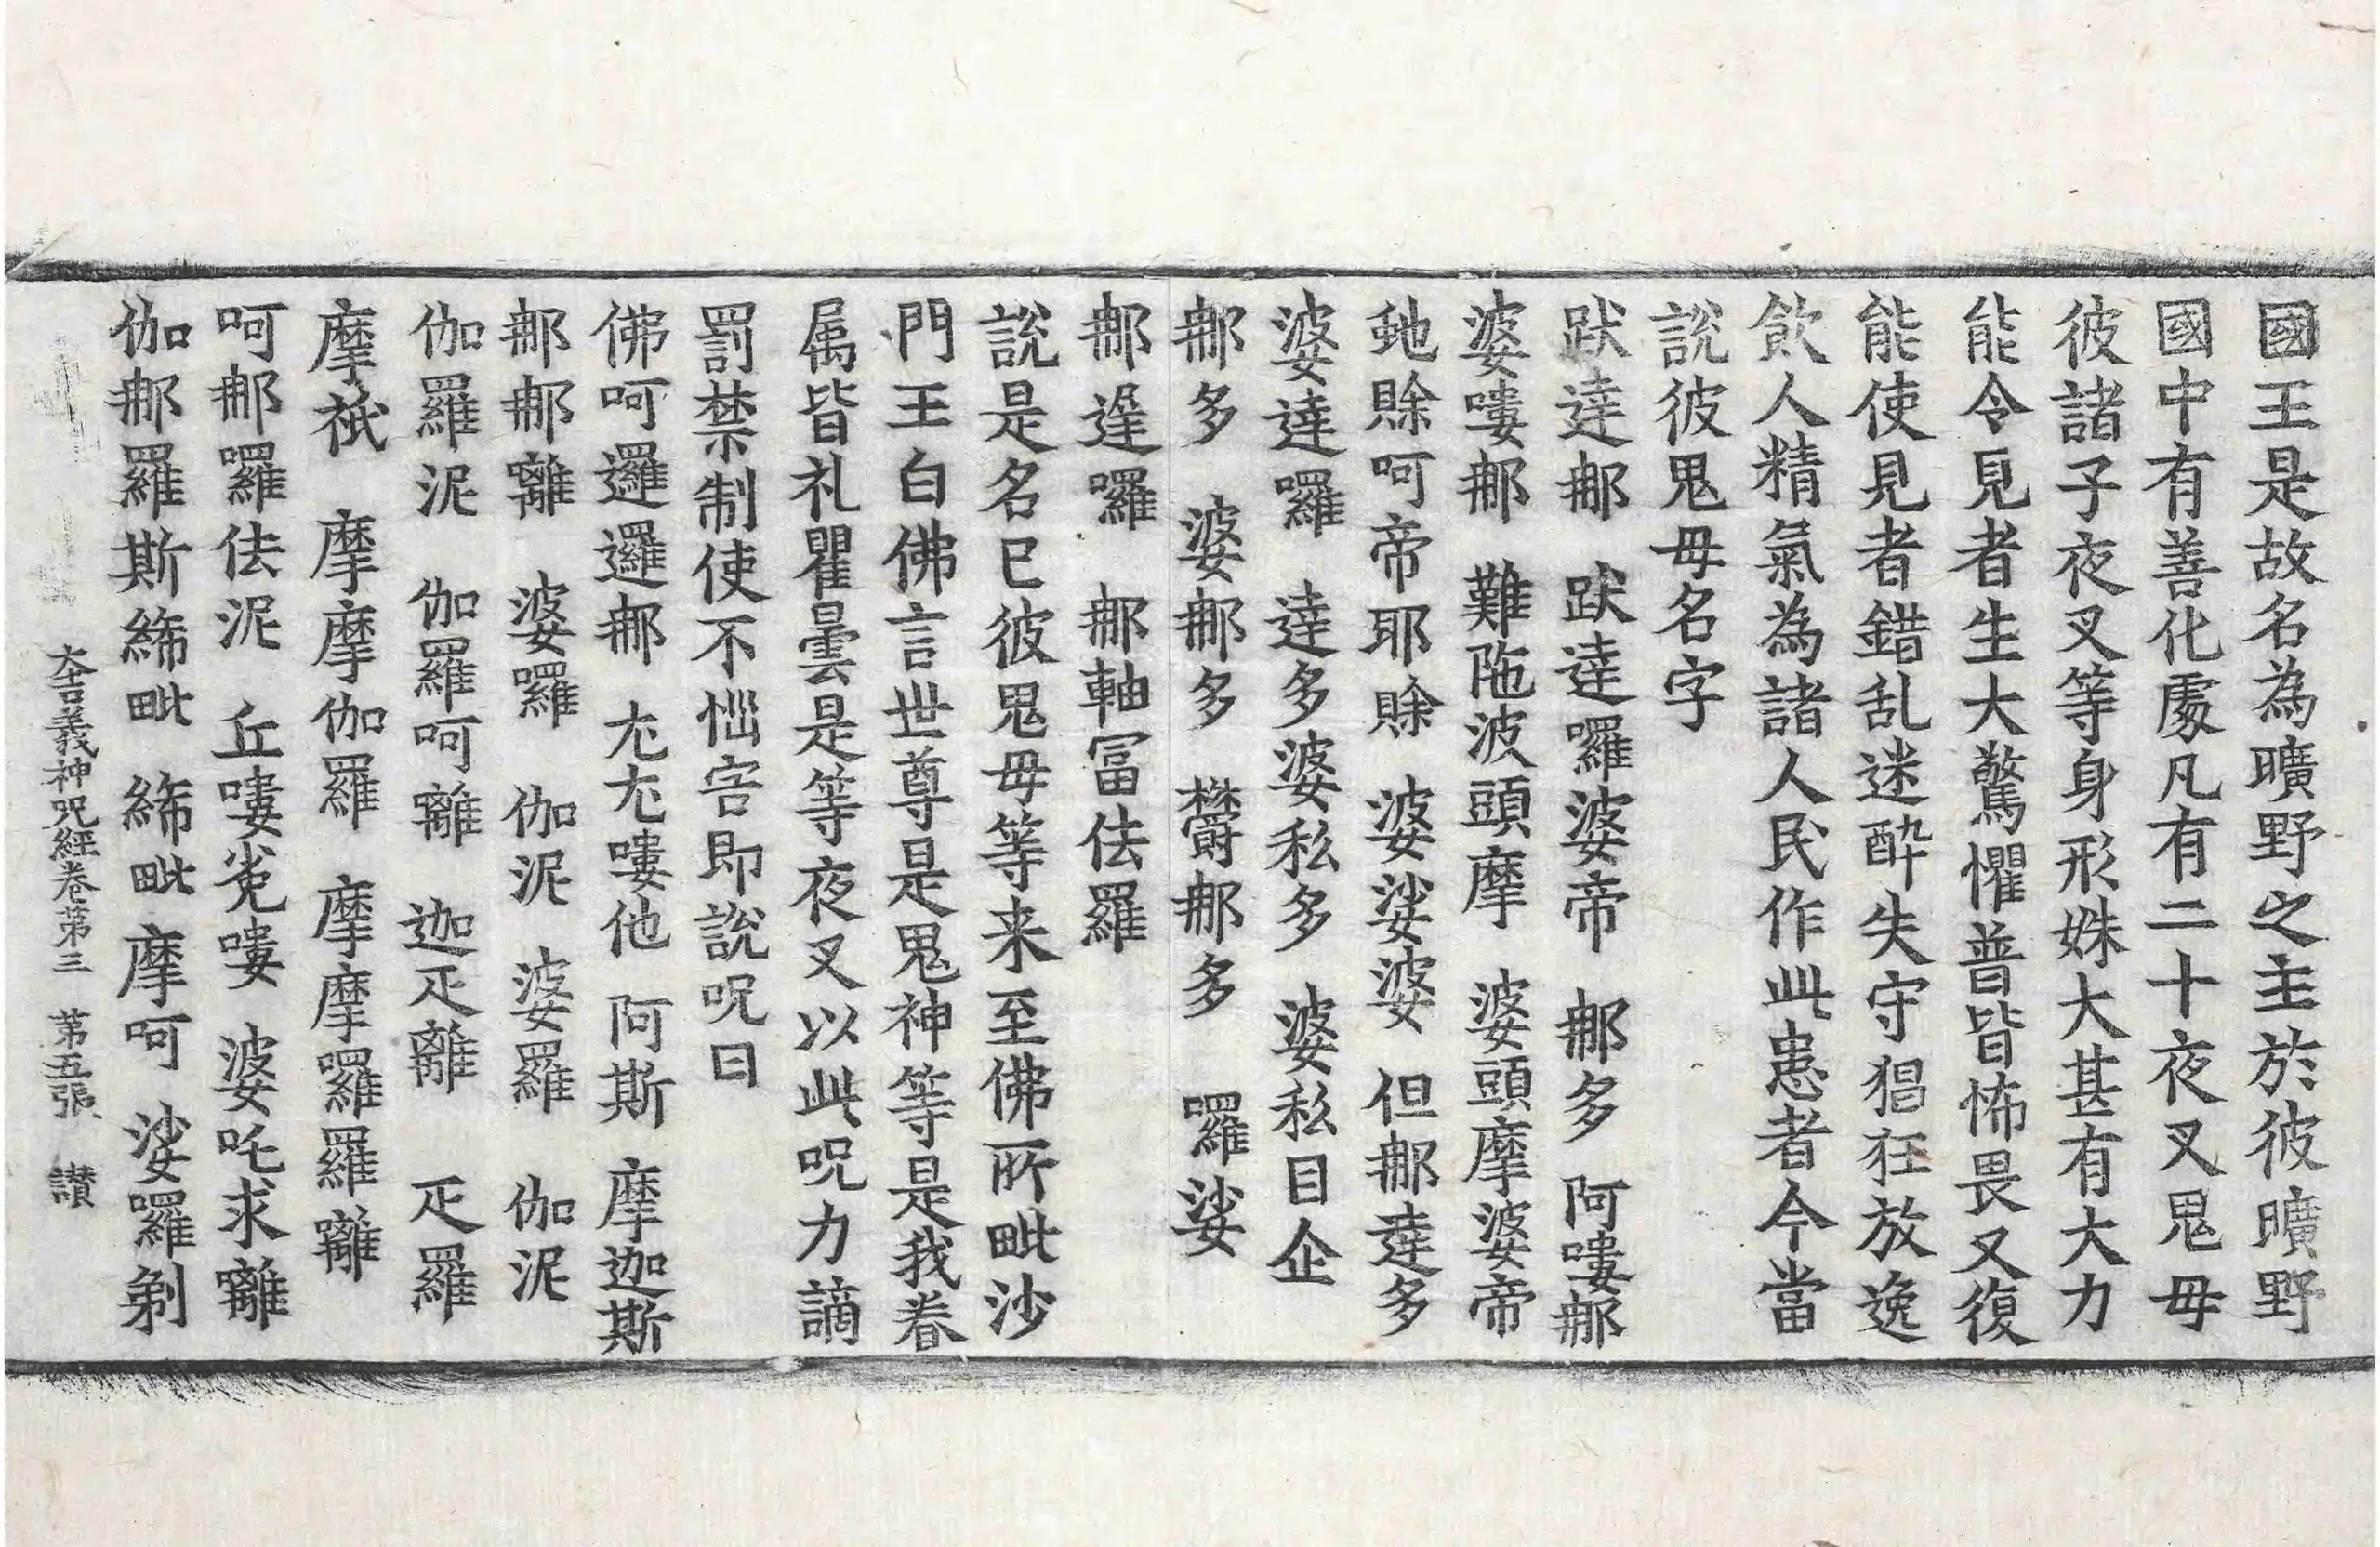 國王是故名為曠野之主於彼曠野
國中有善化處凡有二十夜叉鬼母
彼諸子夜叉等身形姝大甚有大力
能令見者生大驚懼普皆怖畏又復
能使見者錯乱迷醉失守猖狂放逸
飲人精氣為諸人民作此患者今當
說彼鬼母名字
跋達郍 跋達囉婆帝 郍多 阿嘍郍
婆嘍郍 難陁波頭摩 婆頭摩婆帝
虵賒呵帝耶賒 婆娑婆 但郍達多
婆達囉 達多婆私多 婆私目企
郍多 婆郍多 欝郍多 囉娑
郍達囉 郍軸冨佉羅
說是名已彼鬼母等来至佛所毗沙
門王白佛言世尊是鬼神等是我眷
属皆礼瞿曇是等夜叉以此呪力謫
罰禁制使不惱害即說呪曰
佛呵邏邏郍 尤尤嘍他 阿斯 摩迦斯
郍郍離 婆囉 伽泥 婆羅 伽泥
伽羅泥 伽羅呵離 迦疋離 疋羅
摩祇 摩摩伽羅 摩摩囉羅離
呵郍囉佉泥 丘嘍嘍 婆吒求離
伽郍羅斯絺毗 絺毗摩呵 娑囉剃
大吉義神呪經卷第三 第五張 讃